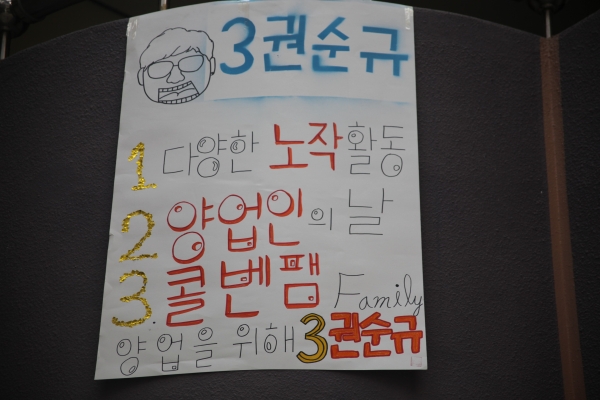 3권순규
1 다양한 노작활동
2 양업인의 날
3. 콜벤팸 Family
양업을 위해 3권순규